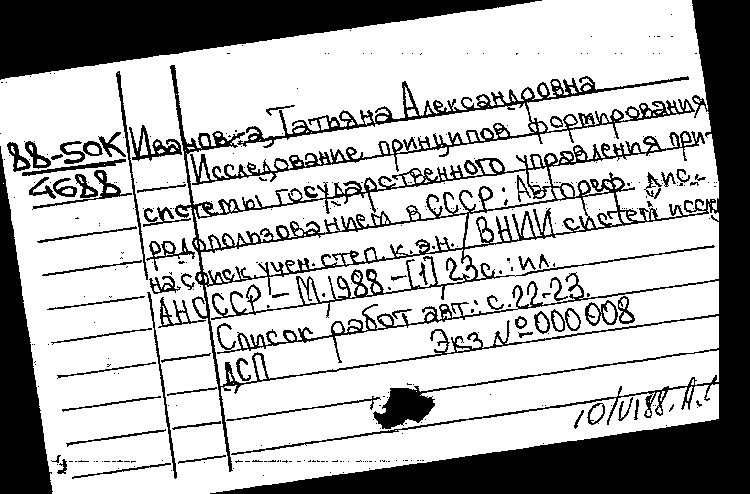 88-50К
4688
Иванова, Татьяна Александровна
Исследование принципов формирования
системы государственного управления при-
родопользованием в СССР: Автореф. дис.
на соиск. учен. степ. к.э.н. / ВНИИ систем исслед
АН СССР. - М. 1988. - [1] 23 с.: ил.
Список работ авт.: с. 22-23.
ДСП Экз № 000008
10/VI 88.